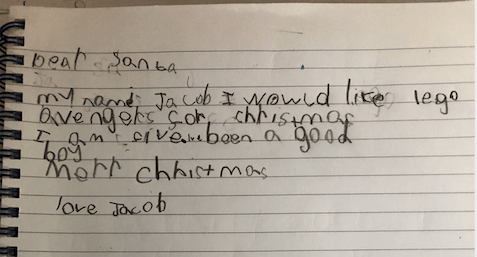 Dear Santa
my name Jacob I would like lego
avengers for christmas
I am five been a good
boy
merr christmas
love Jacob